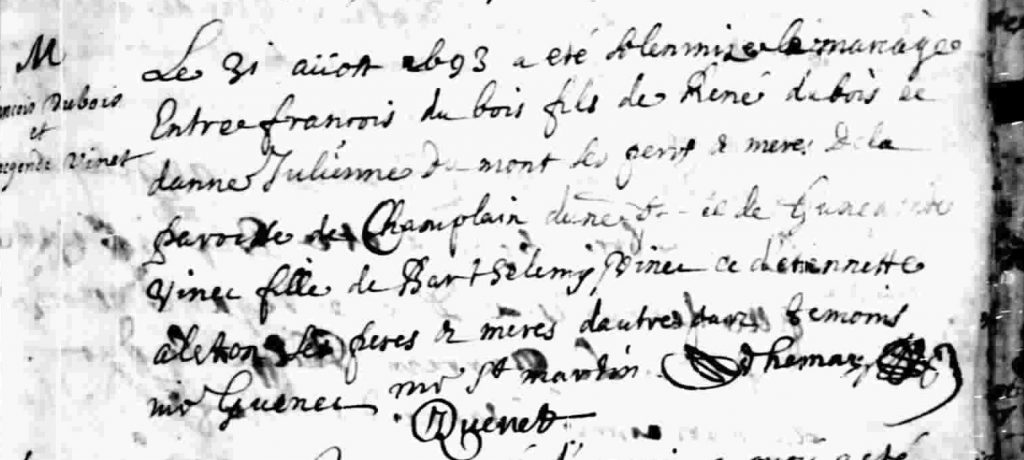 M
Dubois
et
Vinet
Le 31 aüost 1693 a eté Solenmizé le mariage
Entre francois du bois fils de René dubois et
danne Julienne du mont Ses peres & meres De la
paroisse de Champlain dune et de
Vinet fille de Barthelemy Vinet et detiennette
aleton Ses peres & meres dautre part temoins
mr Guenet mr St martin Dhemar
Quenet
a eté